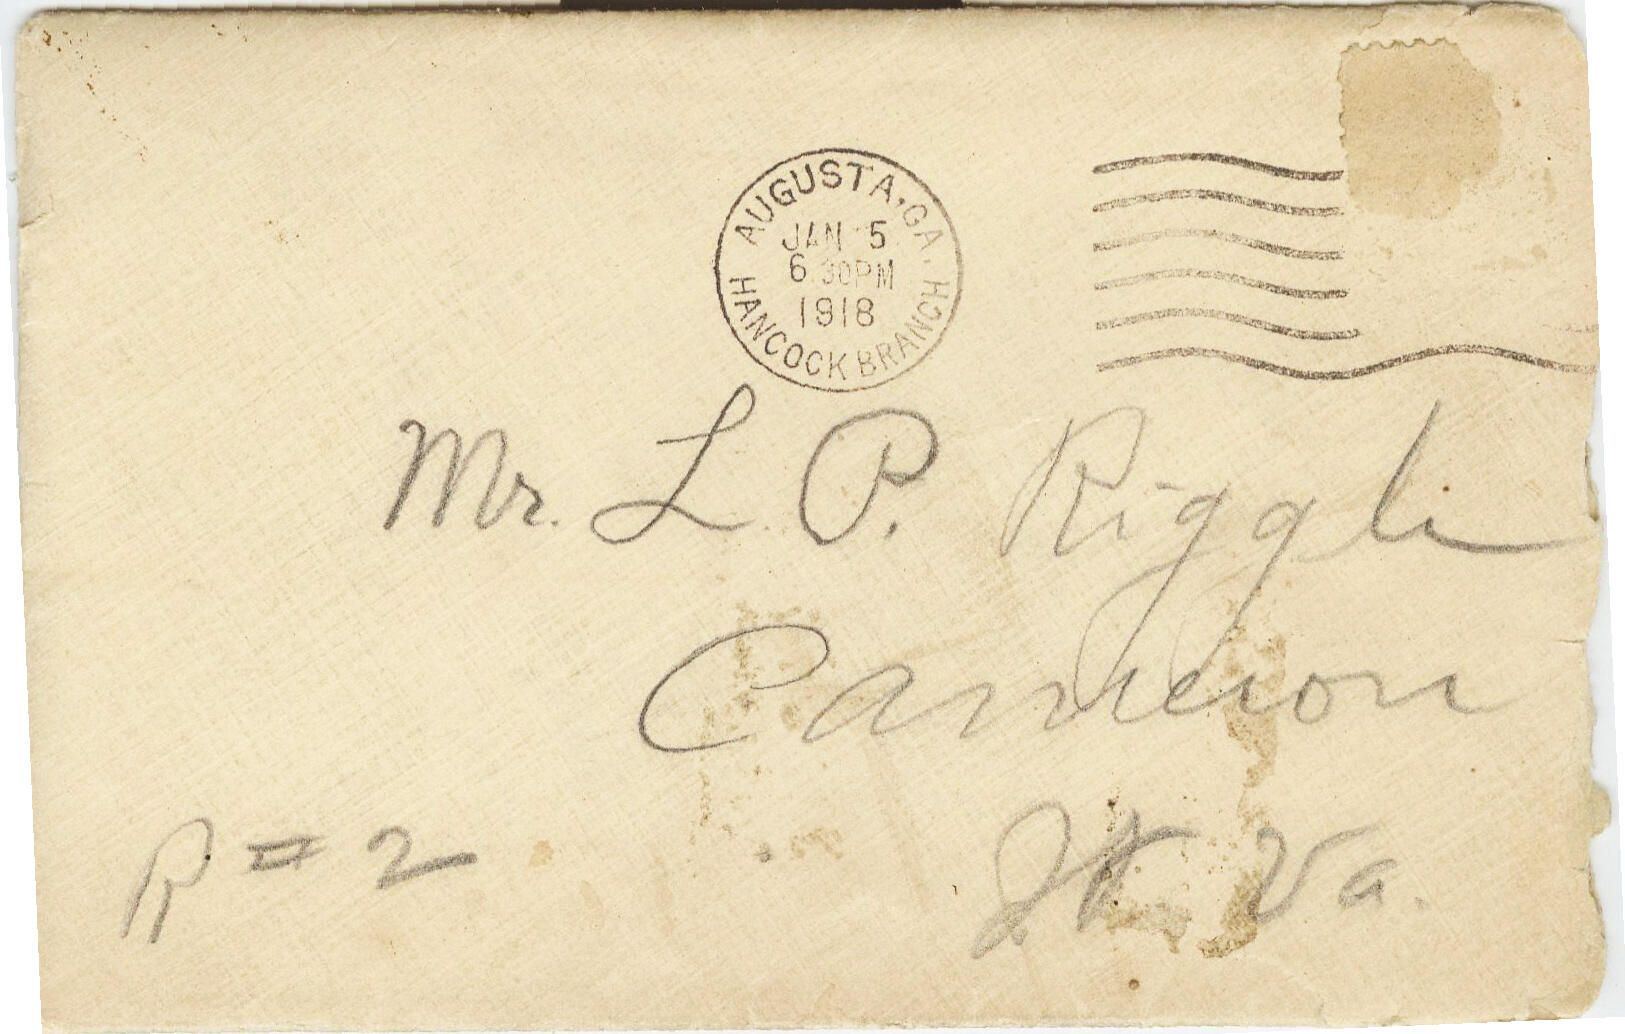 AUGUSTA, GA.
JAN 5
6 30PM
1918
HANCOCK BRANCH
Mr. L. P. Riggle
Cameron
R = 2 W Va.